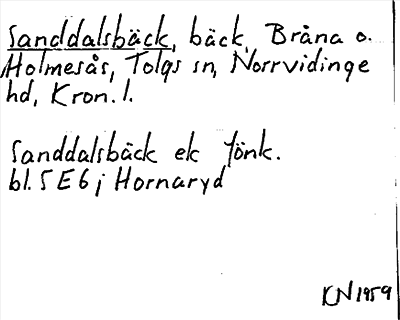 Sanddalsbäck, bäck, Bråna o.
Holmesås, Tolgs sn, Norrvidinge
hd, Kron. l.
Sanddalsbäck ek Jönk.
bl. 5 E 6 j Hornaryd
KN 1959